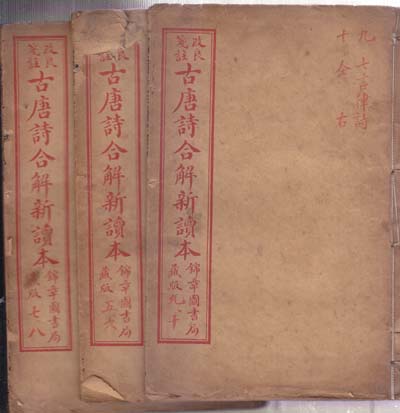 九 七言律詩
十 仝右
改良
箋註
古唐詩合解新讀本
錦章圖書局
藏版九、十
註
古唐詩合解新讀本
錦章圖書局
藏版五六
改良
箋註
古唐詩合解新讀本
錦章圖書局
版七八